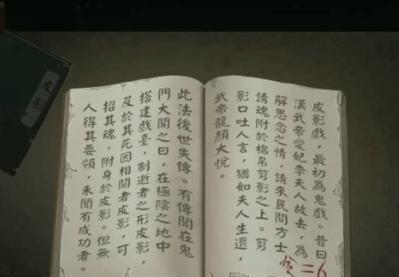 皮影戲，最初為鬼戲。昔日
漢武帝愛妃李夫人故去，為
解思念之情，請來民間方士
請魂附於棉帛剪影之上。剪
影口吐人言，猶如夫人生還，
武帝龍顏大悅。
此法後世失傳。有傳聞在鬼
門大開之日，在極陰之地中
搭建戲臺，制逝者之形皮影，
及於其死因相關者皮影，可
招其魂，附身於皮影。但無
人得其要領，未聞有成功者。
皮影